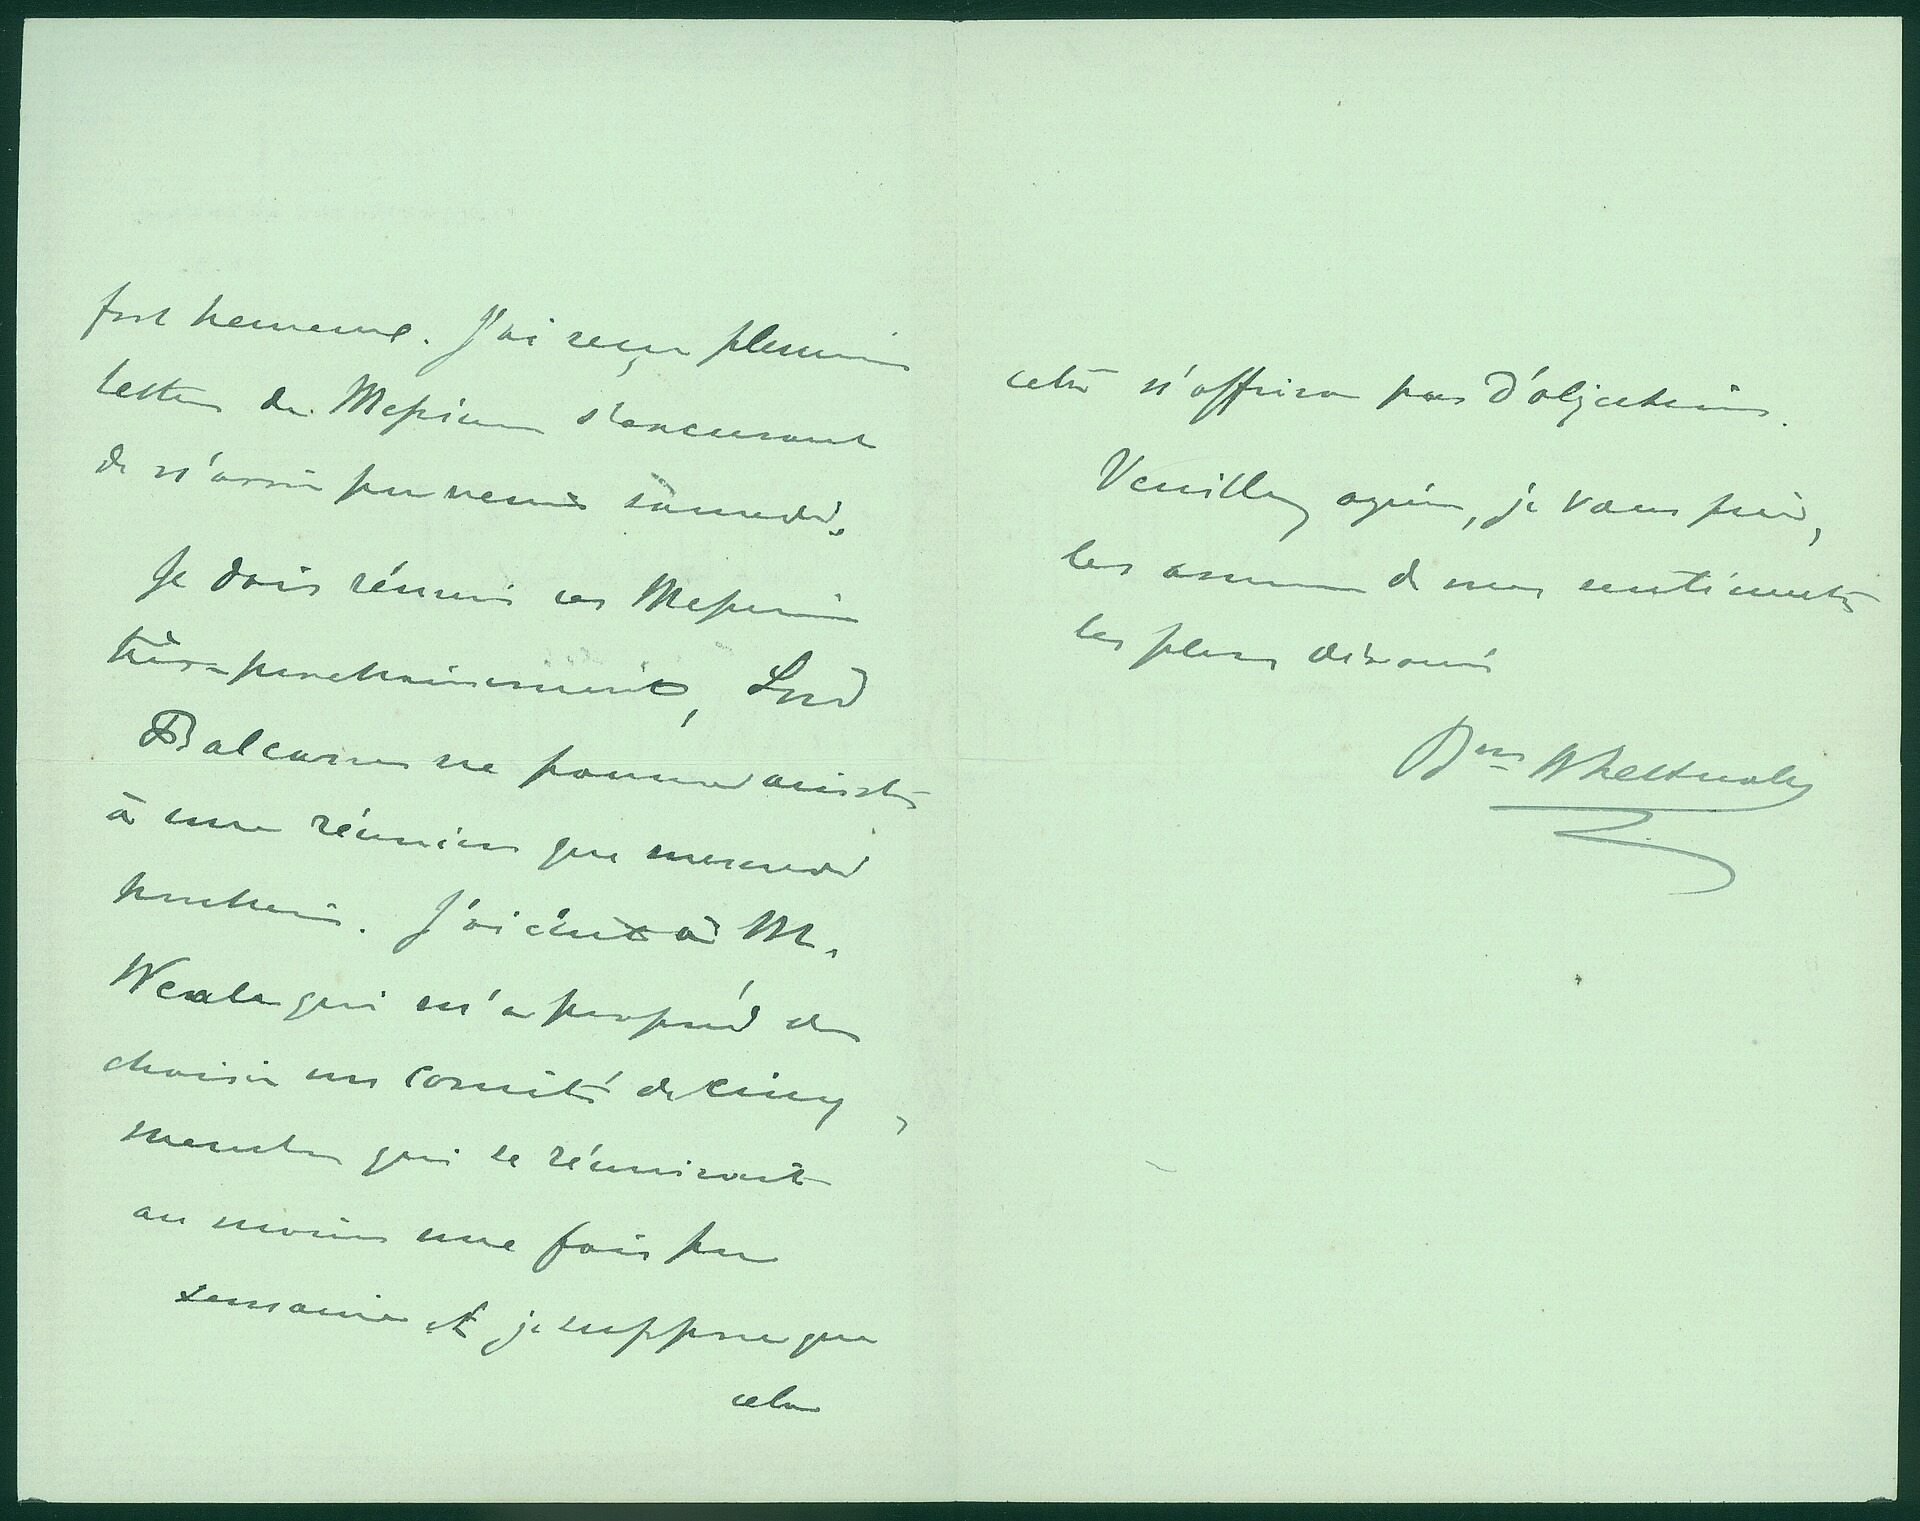 fort heureuse. J'ai reçu plusieurs
lettres de Messieurs s'excusant
de n'avoir pu venir samedi.
Je dois réunir ces Messieurs
très-prochainement, Lord
Balcarres ne pourra assister
à une réunion que mercredi
prochain. J'ai écrit à M.
Weale qui m'a proposé de
choisir un comité de cinq
membres qui se réunirait
au moins une fois par
semaine et je suppose que
cela
cela n'offrira pas d'objections.
Veuillez agréer, je vous prie,
les assurances de mes sentiments
les plus dévoués
Bon